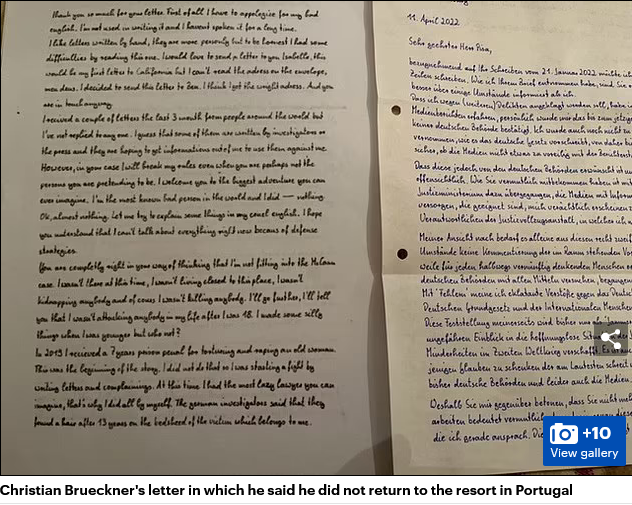 Thank you so much for your letter. First of all I have to appologise for my bad
english. I'm not used in writing it and I havent spoken it for a long time.
I like letters written by hand, they are more personly but to be honest I had some
difficulties by reading this one. I would love to send a letter to you Isabella, this
would be my first letter to California but I can't read the adress on the envelope,
I decided to send this letter to Ben. I think I got the wright adress. And you
are in touch anyway.
I received a couple of letters the last 3 month from people around the world but
I've not replied to any one. I guess that some of them are written by investigators or
the press and they are hoping to get informations outof me to use them against me.
However, in your case I will break my rules even when you are perhaps not the
persons you are pretending to be. I welcome you to the biggest adventure you can
ever imagine. I'm the most known bad person in the world and I did — nothing.
Ok, almost nothing. Let me try to explain some things in my cruel english. I hope
you understand that I can't talk about everything right now becaus of defense
strategies.
You are completly right in your way of thinking that I'm not fitting into the McCann
case. I wasn't there at this time, I wasn't living closed to this place, I wasn't
kidnapping anybody and of cours I wasn't killing anybody. I'll go further, I'll tell
you that I wasn't attacking anybody in my life after I was 18. I made some silly
things when I was younger but who not?
In 2019 I recieved a 7 years prison penal for torturing and raping an old woman.
This was the beginning of the story. I did not do that so I was starting a fight by
writing letters and complainings. At this time I had the most lazy lawyer you can
imagine, that's why I did all by myself. The german investigators said that they
found a hair after 13 years on the bedsheed of the victim which belongs to me.
11. April 2022
Sehr geehrter Herr
bezugnehmend auf Ihr Schreiben vom 21. Januar 2022 möchte ich
Zeilen schreiben. Wie ich Ihrem Brief entnommen habe, sind Sie
besser über einige Umstände informiert als ich.
Dass ich wegen (weiterer) Delikten angeklagt worden sei, habe
Medienberichten erfahren, persönlich wurde mir das bis zum
keiner deutschen Behörde bestätigt. Ich wurde auch noch nicht zu
vernommen, wie es das deutsche Gesetz vorschreibt, von daher bin
sicher, ob die Medien nicht etwas zu voreilig mit der
Dass diese jedoch von den deutschen Behörden erwünscht ist
offensichtlich. Wie Sie vermutlich mitbekommen haben ist
Justizministerium dazu übergegangen, die Medien mit
versorgen, die geeignet sind, mich verächtlich erscheinen
Verantwortlichen der Justizvollzugsanstalt, in welcher ich
Meiner Ansicht nach bedarf es alleine aus diesen recht
Umstände keine Kommentierung der im Raum stehenden
weile für jeden halbwegs vernünftig denkenden Menschen
deutschen Behörden mit allen Mitteln versuchen, begangene
Mit 'Fehlern' meine ich eklatante Verstöße gegen das
Deutschen Grundgesetz und der Internationalen
Diese Feststellung meinerseits wird bisher
ungefähren Einblick in die hoffnungslose
Minderheiten im Zweiten Weltkrieg verschafft. Es ist
jenigen glauben zu schenken der am lautesten schreit
bisher deutsche Behörden und leider auch die Medien
Deshalb Sie mir gegenüber betonen, dass Sie nicht
arbeiten bedeutet vermutlich
die ich gerade ansprach. Die
+10
View gallery
Christian Brueckner's letter in which he said he did not return to the resort in Portugal